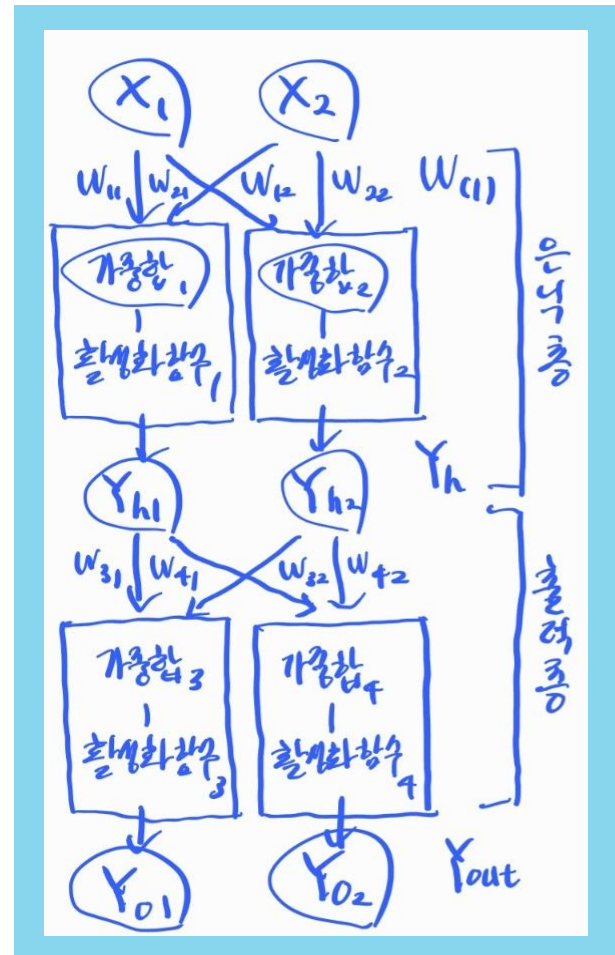 X1 X2
W11 W21 W12 W22 W(1)
가중합1 가중합2
활성화함수1 활성화함수2
은닉층
Yh1 Yh2 Yh
W31 W41 W32 W42
가중합3 가중합4
활성화함수3 활성화함수4
출력층
YO1 YO2 Yout